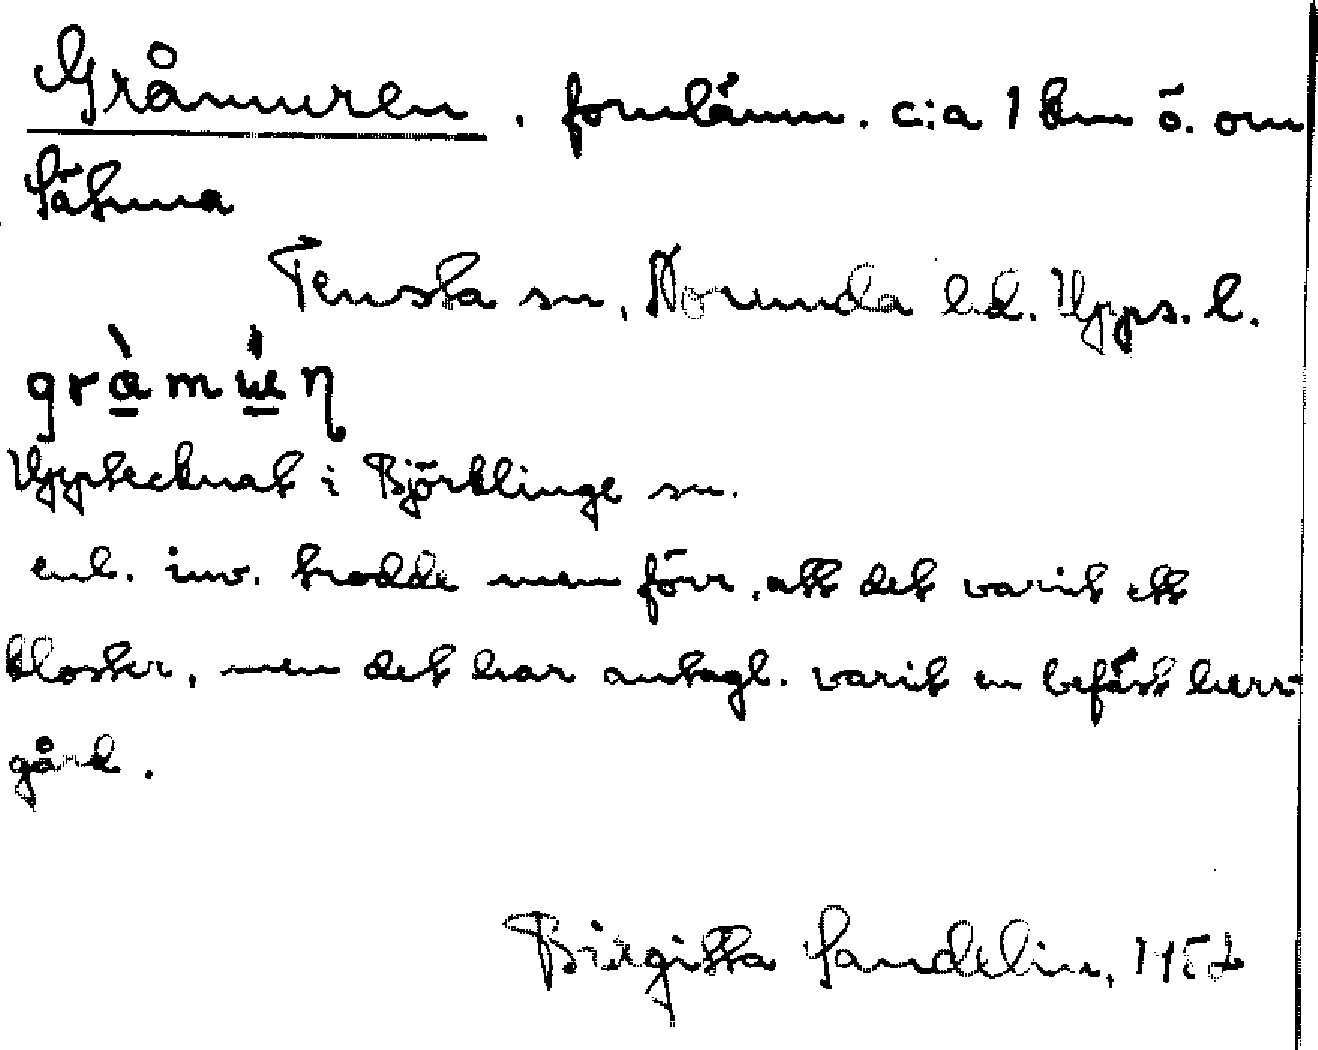 Gråmuren, fornlämn. c:a 1 km ö. om
Sätuna
Tensta sn, Norunda hd. Upps. l.
Upptecknat i Björklinge sn.
enl. inv. trodde men förr, att det varit ett
kloster, men det har antagl. varit en befäst herr-
gård.
Birgitta Sandelin, 1952